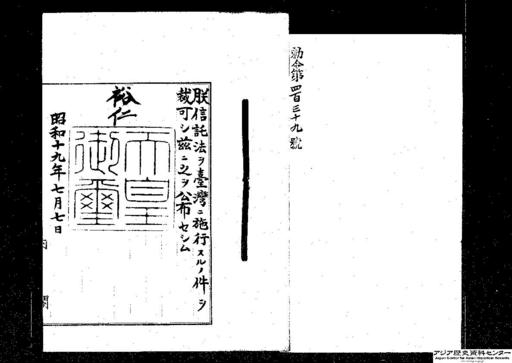 勅令第四百三十九號
朕信託法ヲ臺灣ニ施行スルノ件ヲ
裁可シ玆ニ之ヲ公布セシム
裕仁
天皇御璽
昭和十九年七月七日
内閣
アジア歴史資料センター
Japan Center for Asian Historical Records